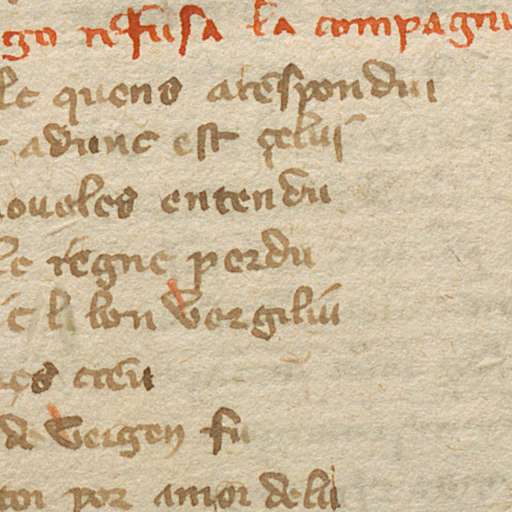 go refusa la compagni
le quens arespondui
adunc est çelui
noueles entendu
le regne perdu
li bon Vergiliu
res creu
de Vergen fu
tor por amor delu